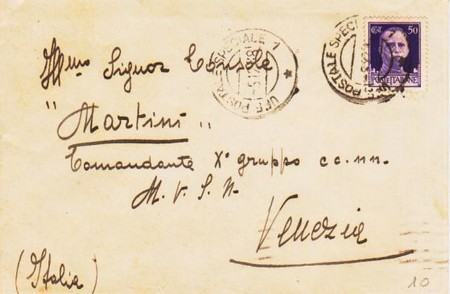 UFF. POSTALE SPECIALE 1
POSTALE SPECI
50
Ill.mo Signor
"Martini"
Comandante X° gruppo cc.nn.
M. V. S. N.
Venezia
(Italia)
10